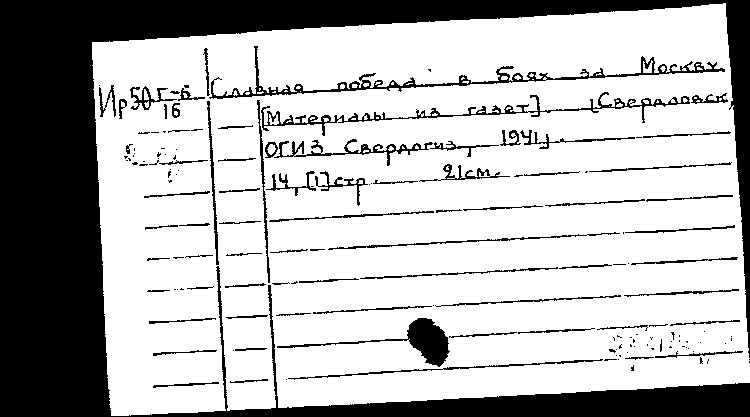 Ир50Г-6 Славная победа в боях за Москву.
16 [Материалы из газет]. [Свердловск,
ОГИЗ Свердлгиз, 1941].
14, [1] стр. 21см.